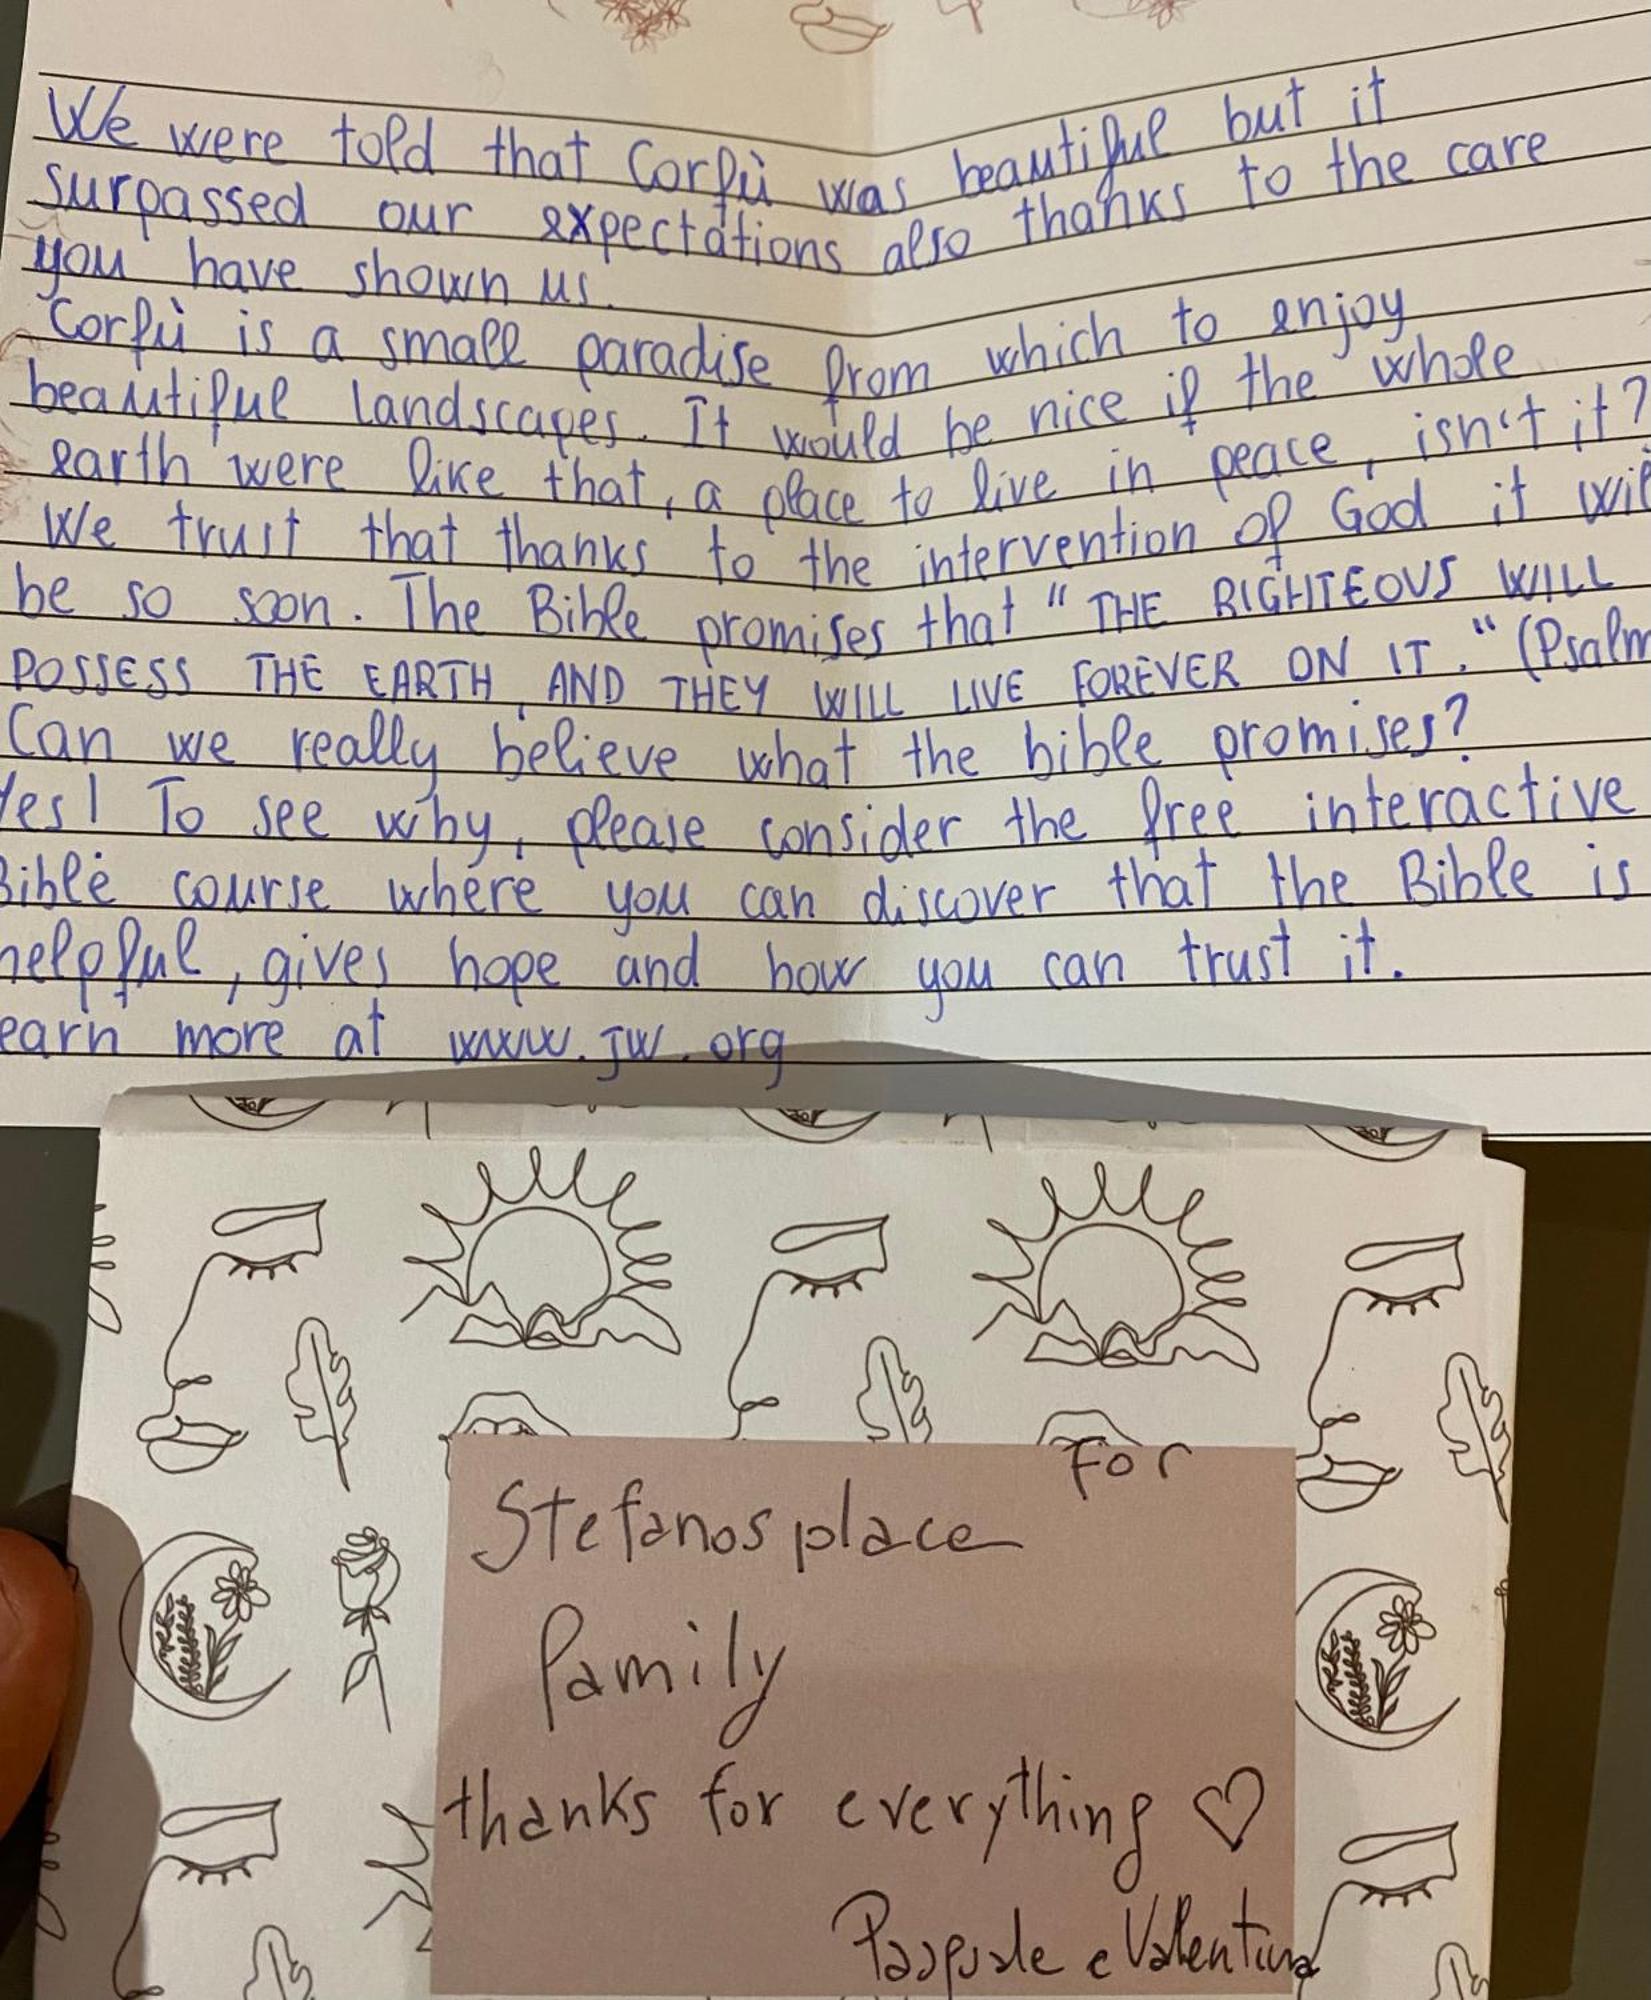 We were told that Corfù was beautiful but it
surpassed our expectations also thanks to the care
you have shown us.
Corfù is a small paradise from which to enjoy
beautiful landscapes. It would be nice if the whole
earth were like that, a place to live in peace, isn't it?
We trust that thanks to the intervention of God it wil
be so soon. The Bible promises that "THE RIGHTEOUS WILL
POSSESS THE EARTH, AND THEY WILL LIVE FOREVER ON IT." (Psalm
Can we really believe what the bible promises?
Yes! To see why, please consider the free interactive
Bible course where you can discover that the Bible is
helpful, gives hope and how you can trust it.
earn more at www.jw.org
For
Stefanos place
family
thanks for everything ♡
Pasquale e Valentina